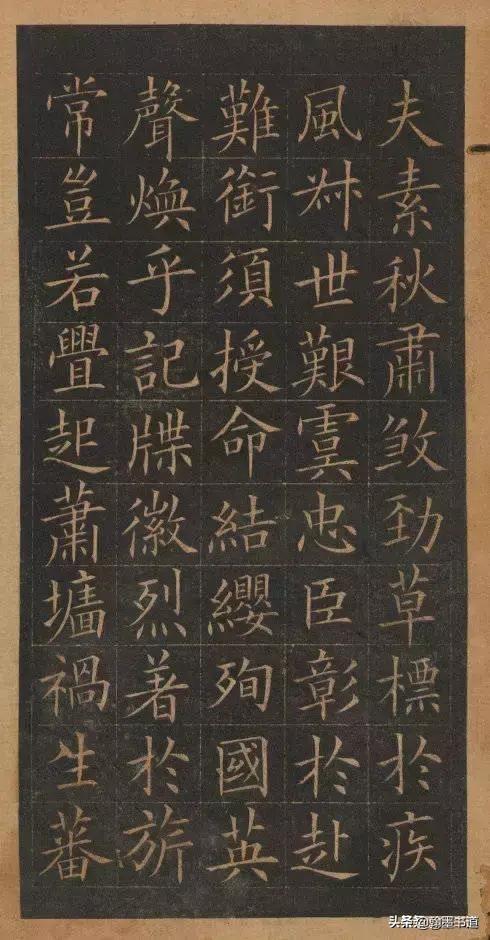 夫素秋肅煞勁草標於疾
風叔世艱虞忠臣彰於赴
難銜須授命結纓殉國英
聲煥乎記牒徽烈著於旂
常豈若釁起蕭墻禍生蕃
头条@翰墨书道